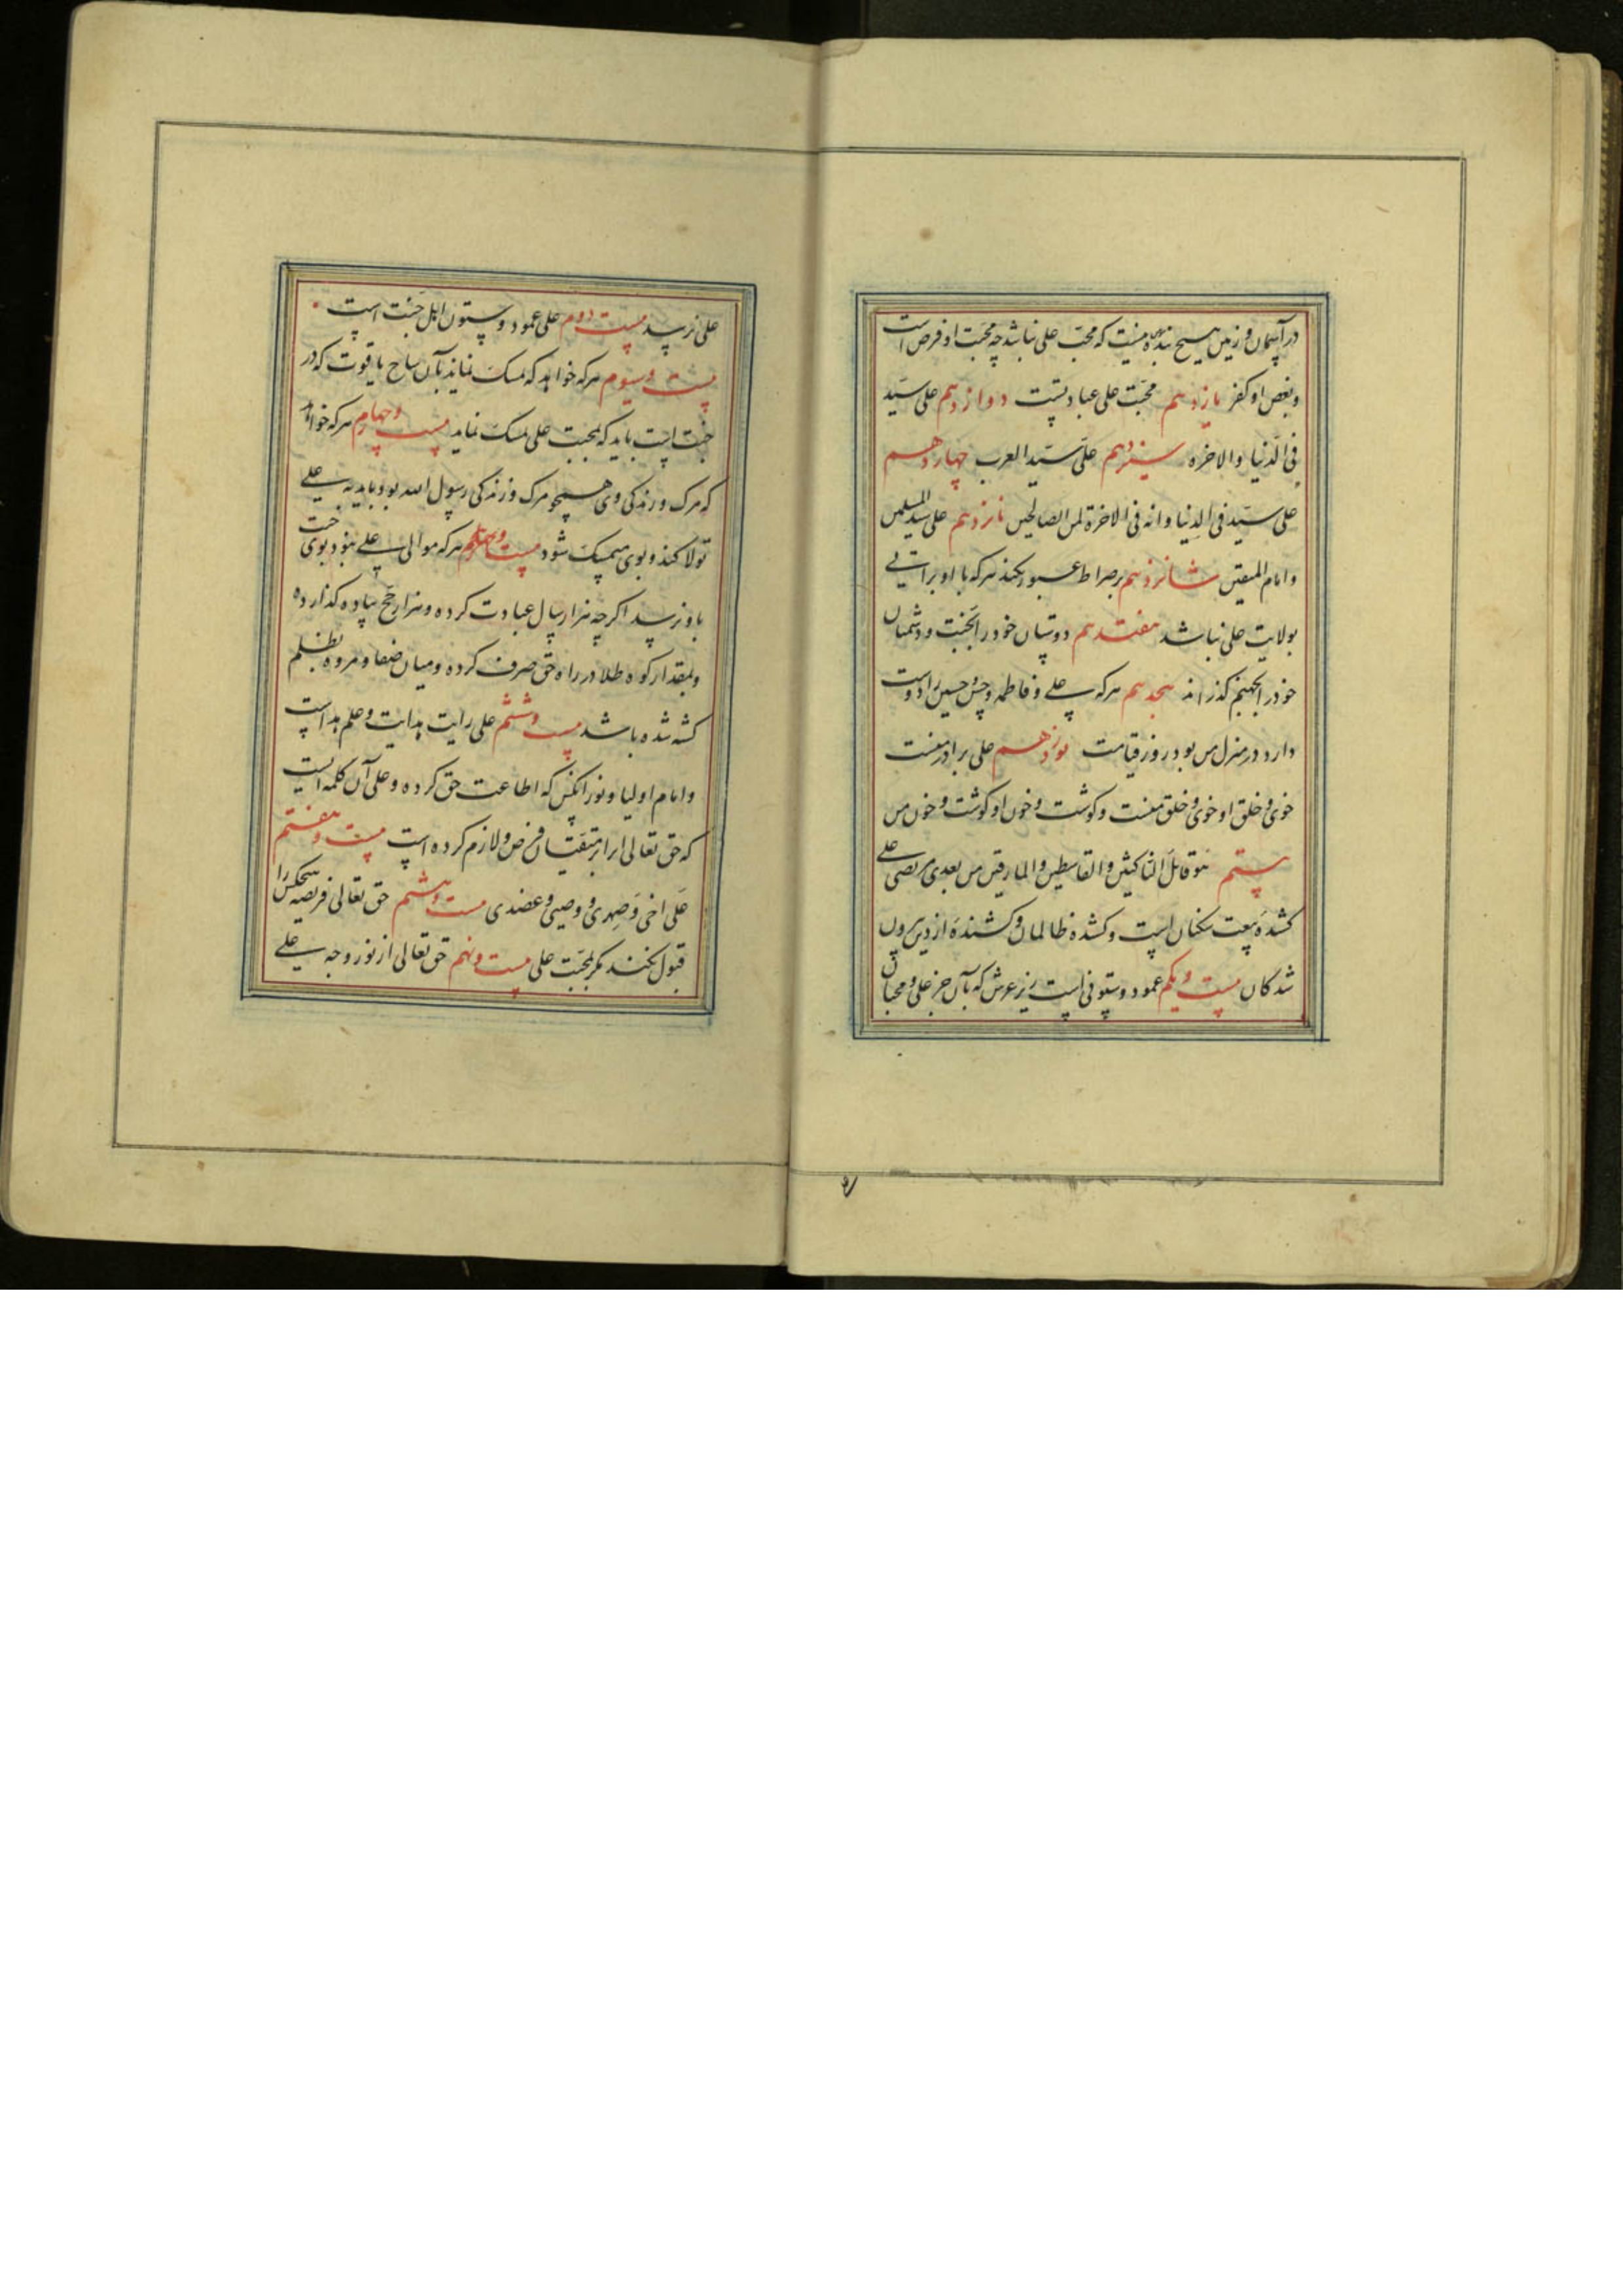 در آسمان و زمین هیچ بنده نیست که محب علی نباشد چه محبت او فرض است
و بغض او کفر یازدهم محبت علی عبادتست دوازدهم علی سید
فی الدنیا والاخره سیزدهم علی سید العرب چهاردهم
علی سید فی الدنیا وانه فی الاخرة لمن الصالحین پانزدهم علی سید المسلمین
و امام المتقین شانزدهم بر صراط عبور نکند هر که با او براتی
بولایت علی نباشد هفتدهم دوستان خود را بجنت و دشمنان
خود را بجهنم گذراند هجدهم هر که علی و فاطمه و حسن و حسین را دوست
دارد در منزل من بود روز قیامت نوزدهم علی برادر منست
خوی و خلق او خوی و خلق منست و گوشت و خون او گوشت و خون من
بیستم هو قاتل الناکثین والقاسطین والمارقین من بعدی یعنی علی
کشنده بیعت شکنان است و کشنده ظالمان و کشنده از دین بیرون
شدگان بیست و یکم عمود و ستونی است زیر عرش که بآن جز علی و محبان
علی نرسید بیست دوم علی عمود و ستون اهل جنت است
بیست و سیوم هر که خواهد که تمسک نماید بآن شاخ یاقوت که در
جنت است باید که بمحبت علی تمسک نماید بیست و چهارم هر که خواهد
که مرک و زندکی وی همچو مرک و زندکی رسول الله بود باید به علی
تولا کند و بوی متمسک شود بیست هر که موالی علی نبود بوی جنت
باو نرسد اکرچه هزار سال عبادت کرده و هزار حج پیاده کذارده
و بمقدار کوه طلا در راه حق صرف کرده و میان صفا و مروه بظلم
کشته شده باشد بیست و ششم علی رایت هدایت و علم هداست
و امام اولیا و نور آنکس که اطاعت حق کرده و علی آن کلمه ایست
که حق تعالی ابرار متقیان فرض و لازم کرده است بیست و هفتم
علی اخی و صهری و وصیی و عضدی بیست و هشتم حق تعالی فریضه هیچکس را
قبول نکند مکر بمحبت علی بیست و نهم حق تعالی از نور وجه علی